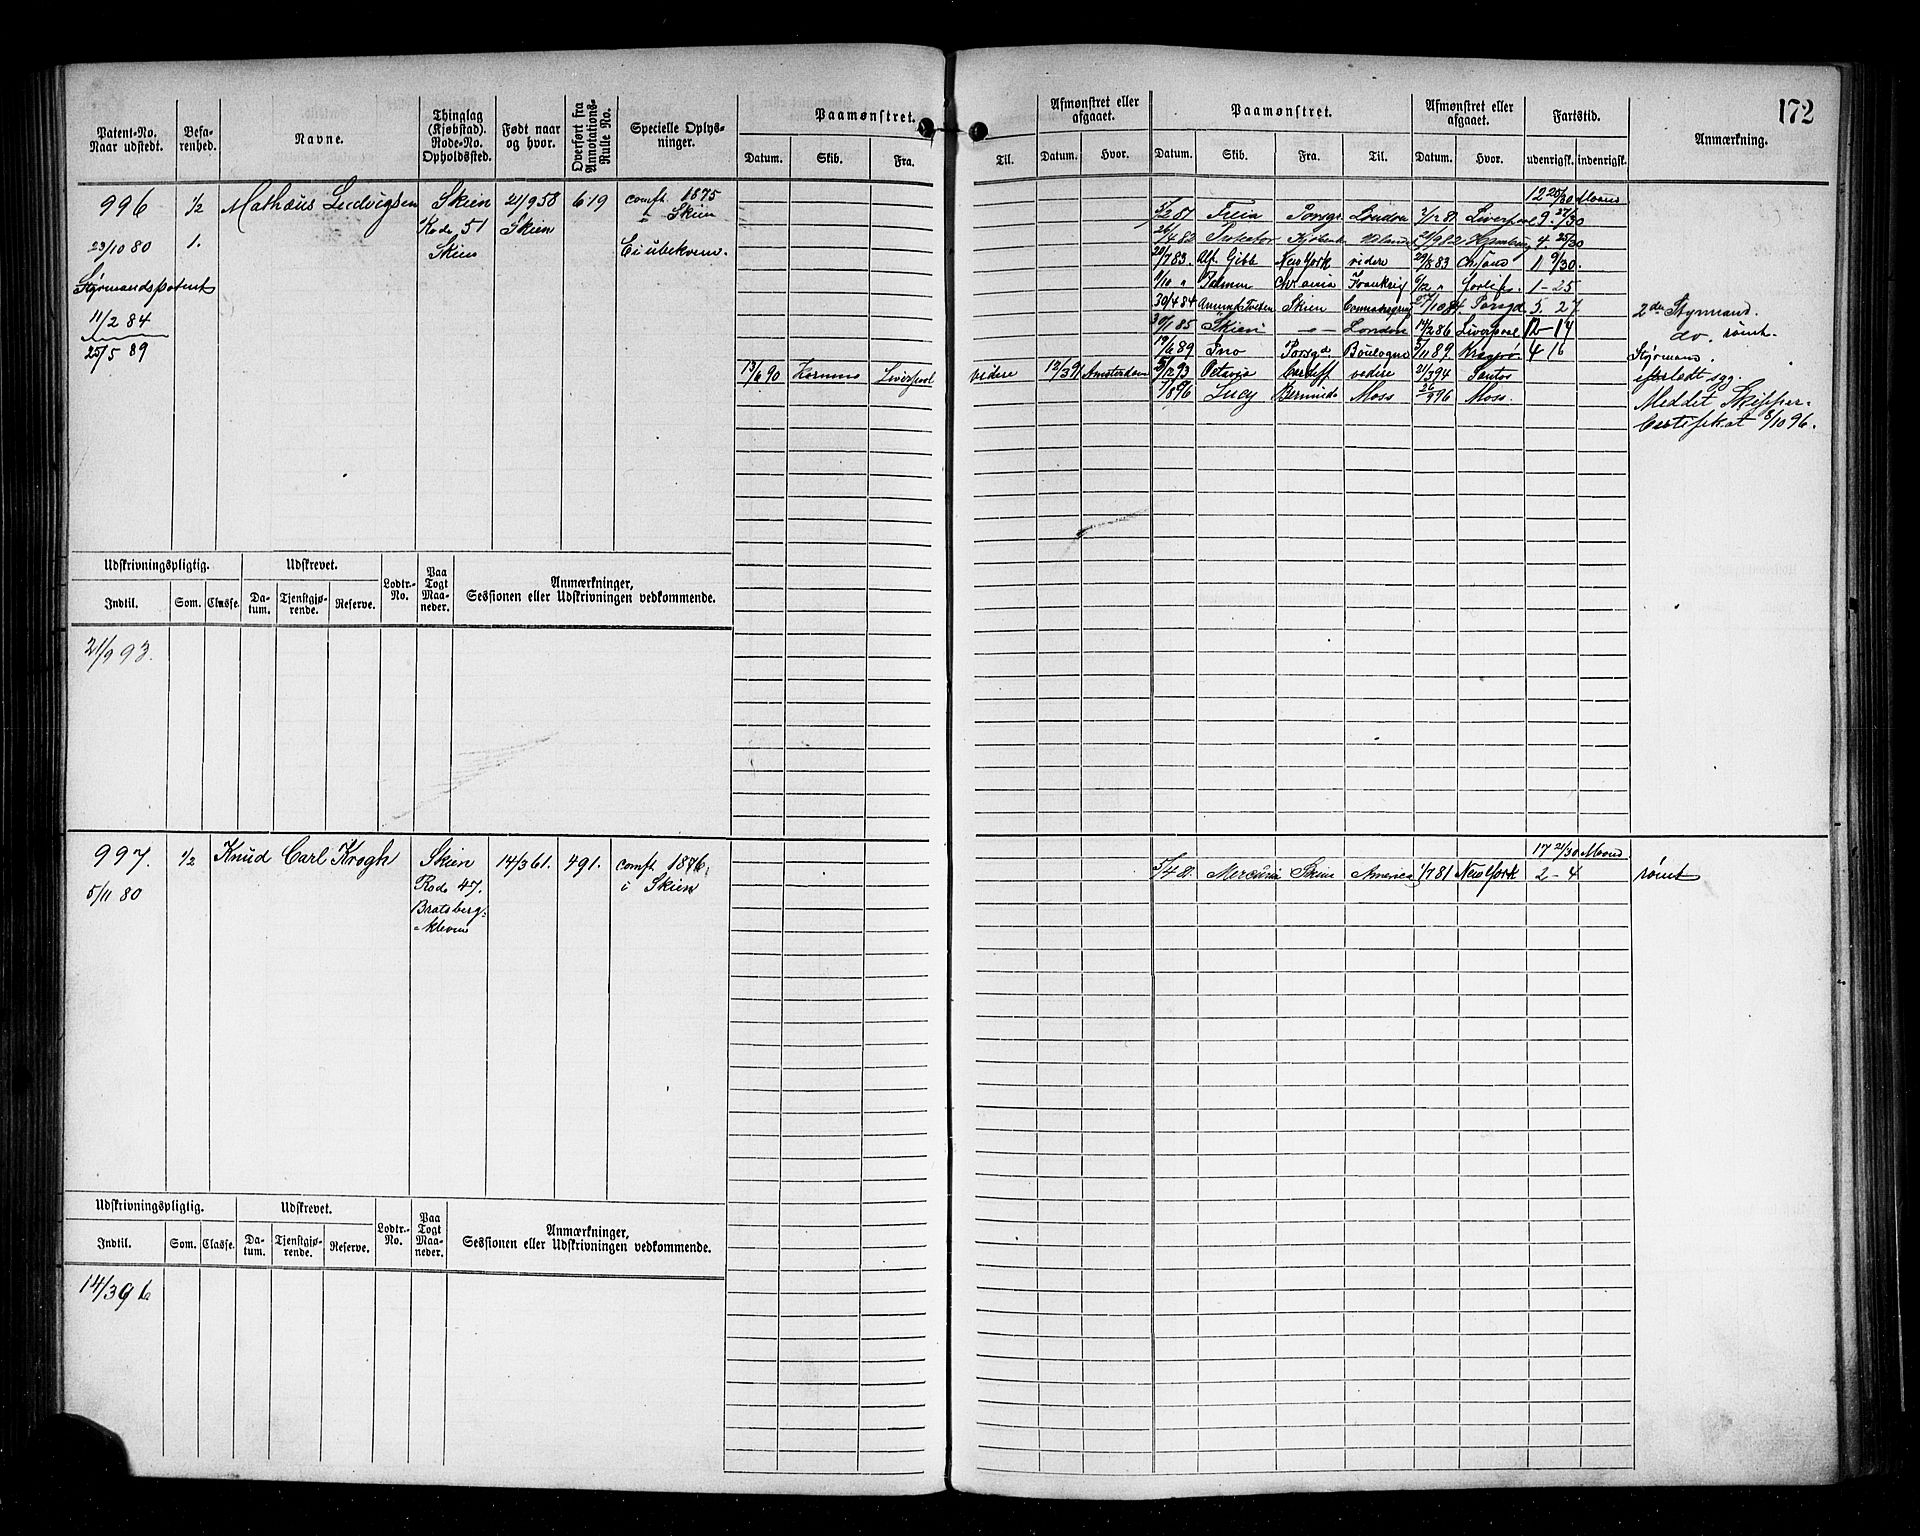 172
Patent-No. Naar udstedt.
Befarenhed.
Navne.
Thinglag (Kjøbstad). Rode-No. Opholdssted.
Født naar og hvor.
Overført fra Annotations-Rulle No.
Specielle Oplysninger.
Paamønstret.
Datum. Skib. Fra.
Til.
Afmønstret eller afgaaet.
Datum. Hvor.
Paamønstret.
Datum. Skib. Fra. Til.
Afmønstret eller afgaaet.
Datum. Hvor.
Fartstid.
udenrigsk. indenrigsk.
Anmærkning.
996 1/2 Mathæus Ludvigsen Skien 21/9 58 619 comft. 1875
1. Rode 51 Skien i Skien
23/10 80 Skien Ei ubekvem.
Styrmandspatent
11/2 84
25/5 89
13/6 90 Liverpool videre 12/3 91 Amsterdam
12 25/30 Maaned
Porsgr. London Liverpool 9. 27/30
26/4 82 21/9 82 Hamburg 4. 25/30
Alf. Gibb New York videre 29/8 83 11 9/30.
Frankrig forlist. 1-25
30/4 84 Skien Porsgd 5. 27 2den Styrmand.
30/1 85 Skien London 14/2 86 Liverpool 12-14 do. rømt.
Ino Porsgd Boulogne 5/11 89 Kragerø 4 16 Styrmand.
Octavia Cardiff videre 21/3 94 Santos
Lucy Bermuda Moss Moss. Meddelt Skipper-
Certifikat 8/10 96.
Udskrivningspligtig. Udskrevet. Lodtr.-No. Paa Togt Maaneder. Anmærkninger, Sessionen eller Udskrivningen vedkommende.
Indtil. Som. Classe. Datum. Tjenstgjørende. Reserve.
21/9 93.
997. 1/2 Knud Carl Krogh Skien 14/3 61. 491. comft. 1876.
5/11 80 Rode 47. i Skien
Bratsberg-
kleven
17 21/30 Maaned
5/4 81. Mercuria Skien America 1/7 81 New York 2-4 rømt
Udskrivningspligtig. Udskrevet. Lodtr.-No. Paa Togt Maaneder. Anmærkninger, Sessionen eller Udskrivningen vedkommende.
Indtil. Som. Classe. Datum. Tjenstgjørende. Reserve.
14/3 96